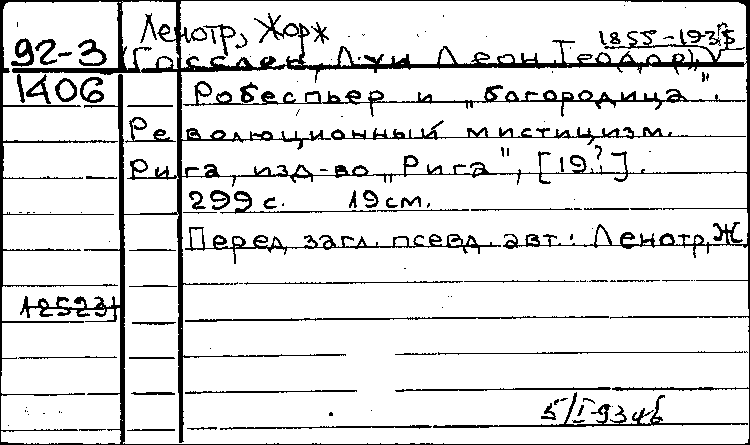 Ленотр, Жорж
92-3 (Госслен, Луи Леон Теодор), 1855-1935
1406 Робеспьер и „богородица".
Революционный мистицизм.
Рига, изд-во „Рига", [19?].
299 с. 19 см.
Перед загл. псевд. авт.: Ленотр, Ж.
12523
5/I-93